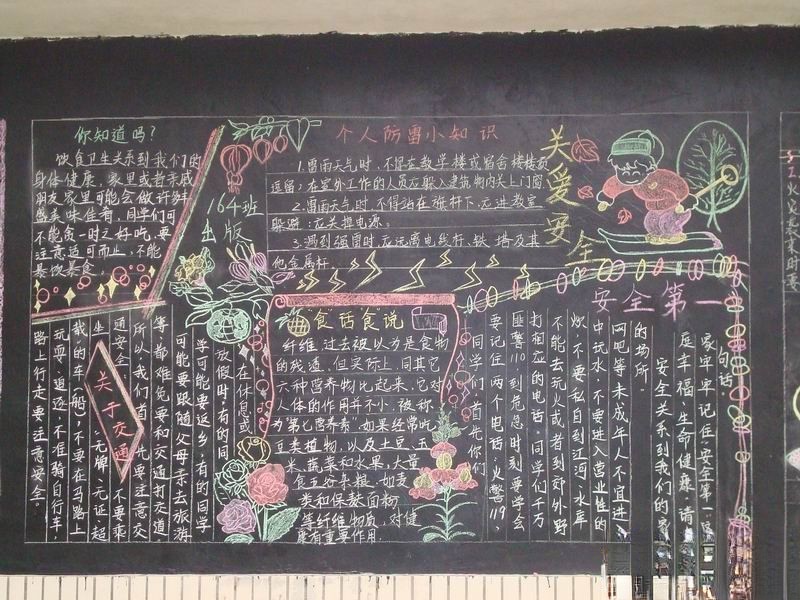 你知道吗?
饮食卫生关系到我们的
身体健康,家里或者亲戚
朋友家里可能会做许多
美味佳肴,同学们可
不能贪一时之好吃,要
注意适可而止,不能
暴饮暴食。
164班
出版
个人防雷小知识
1.雷雨天气时,不得在教学楼或宿舍楼楼顶
逗留;在室外工作的人员应躲入建筑物内关上门窗
2.雷雨天气时,不得站在旗杆下,应进教室
躲避;应关掉电源。
3.遇到强雷时,应远离电线杆、铁塔及其
他金属杆。
关爱安全
安全第一
句话:
家牢牢记住,安全第一
庭幸福,生命健康,请
安全关系到我们的家
的场所。
网吧等未成年人不宜进入
中玩水,不要进入营业性的
炊,不要私自到江河、水库
不能去玩火或者到郊外野
打相应的电话,同学们千万
匪警110到危急时刻要学会
要记住两个电话,火警119、
同学们首先你们
"食"话食"说
纤维,过去被认为是食物
的残渣,但实际上,同其它
六种营养物比起来,它对
人体的作用并不小,被称
为第七营养素,如果经常吃
豆类植物,以及土豆、玉
米、蔬菜和水果,大量
食五谷杂粮,如麦
类和保麸面粉
等纤维物质,对健
康有重要作用.
关于交通
在休息或
放假时,有的同
学可能要返乡,有的同学
可能要跟随父母亲去旅游
等都难免要和交通打交道
所以我们首先要注意交
通安全,不要乘
坐无牌、无证、超
载的车(船),不要在马路上
玩耍、追逐,不准骑自行车,
路上行走要注意安全。